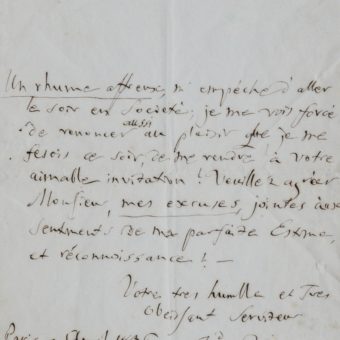 Un rhume affreux, m'empêche d'aller
le soir en Société; je me vois forcé
aussi
de renoncer au plaisir que je me
fesois ce soir, de me rendre à votre
aimable invitation! Veuillez agréer
Monsieur, mes excuses, jointes aux
sentiments de ma parfaite Estime,
et réconnoissance! —
Votre très humble et Tres
obeissant Serviteur
Paris